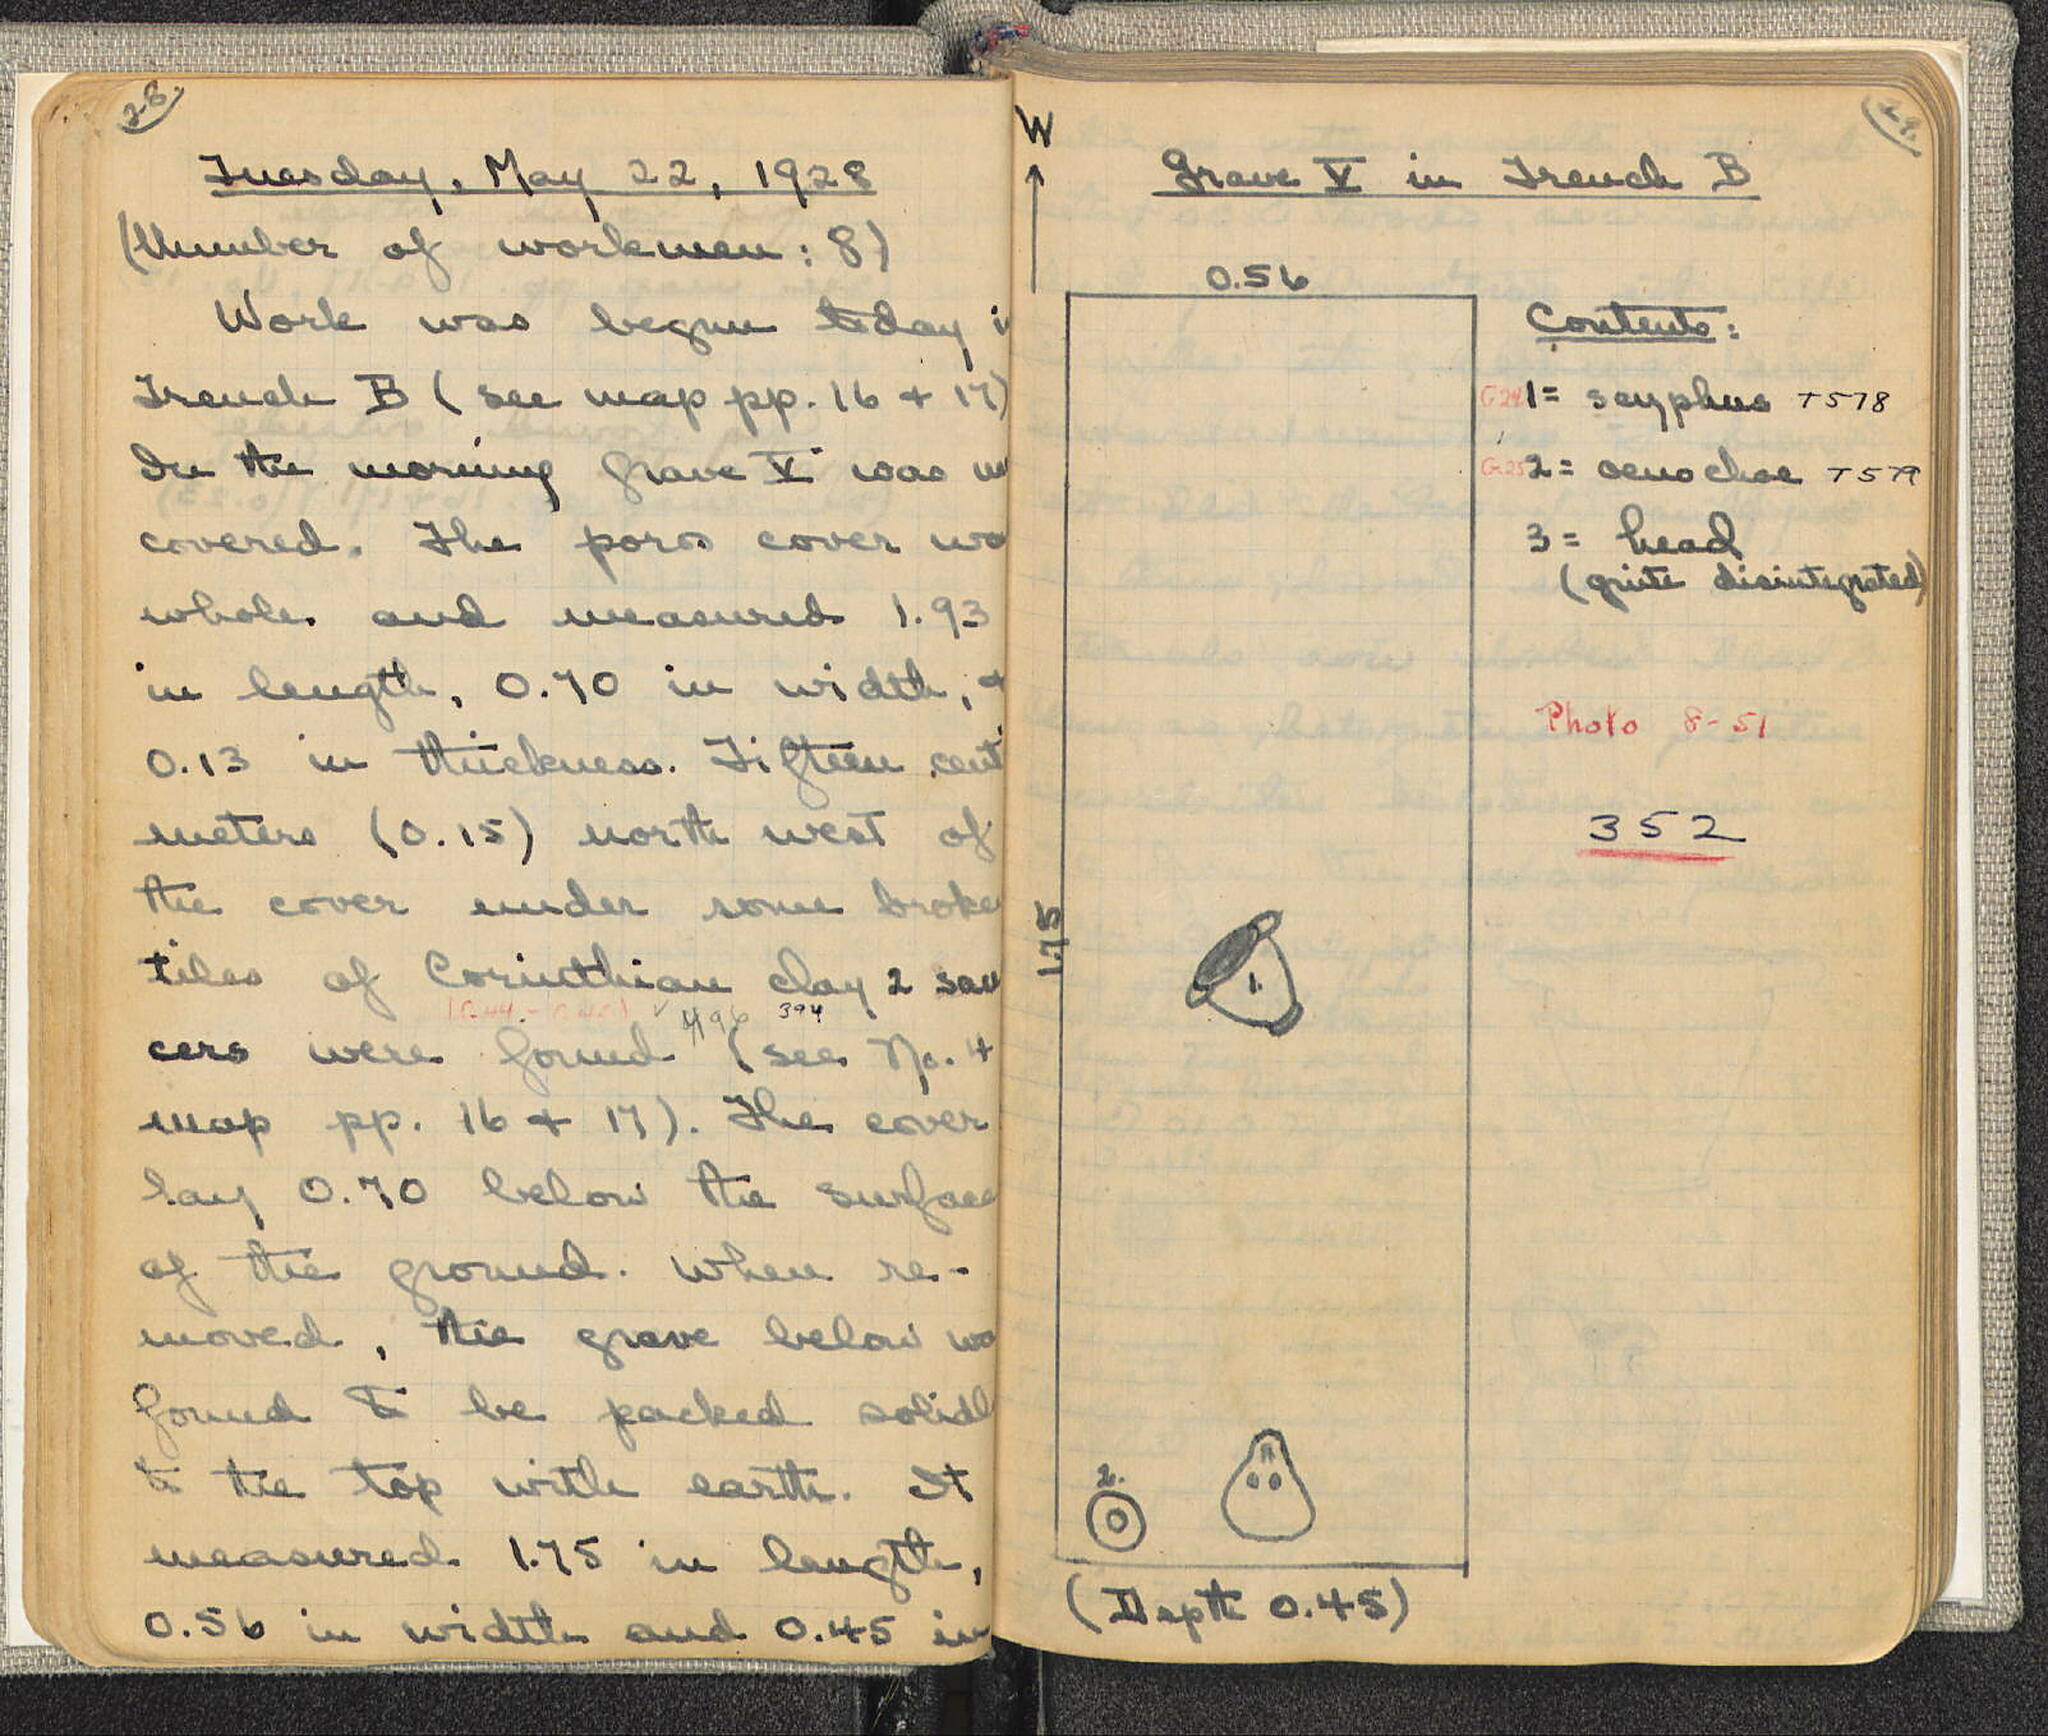 28.
Tuesday, May 22, 1928
(Number of workmen: 8)
Work was begun today i
Trench B (see map pp. 16 + 17)
In the morning Grave V was un
covered. The poros cover wa
whole and measured 1.93
in length, 0.70 in width, +
0.13 in thickness. Fifteen centi
meters (0.15) north west of
the cover under some broke
tiles of Corinthian clay 2 sau
496 394
cers were found (see No. 4
map pp. 16 + 17). The cover
lay 0.70 below the surface
of the ground. When re-
moved, the grave below wa
found to be packed solidl
to the top with earth. It
measured 1.75 in length,
0.56 in width and 0.45 in
29.
W
Grave V in Trench B
0.56
Contents:
G24 1 = scyphus T578
G25 2 = oenochoe T579
3 = head
(quite disintegrated)
Photo 8-51
352
1.75
1.
2.
(Depth 0.45)